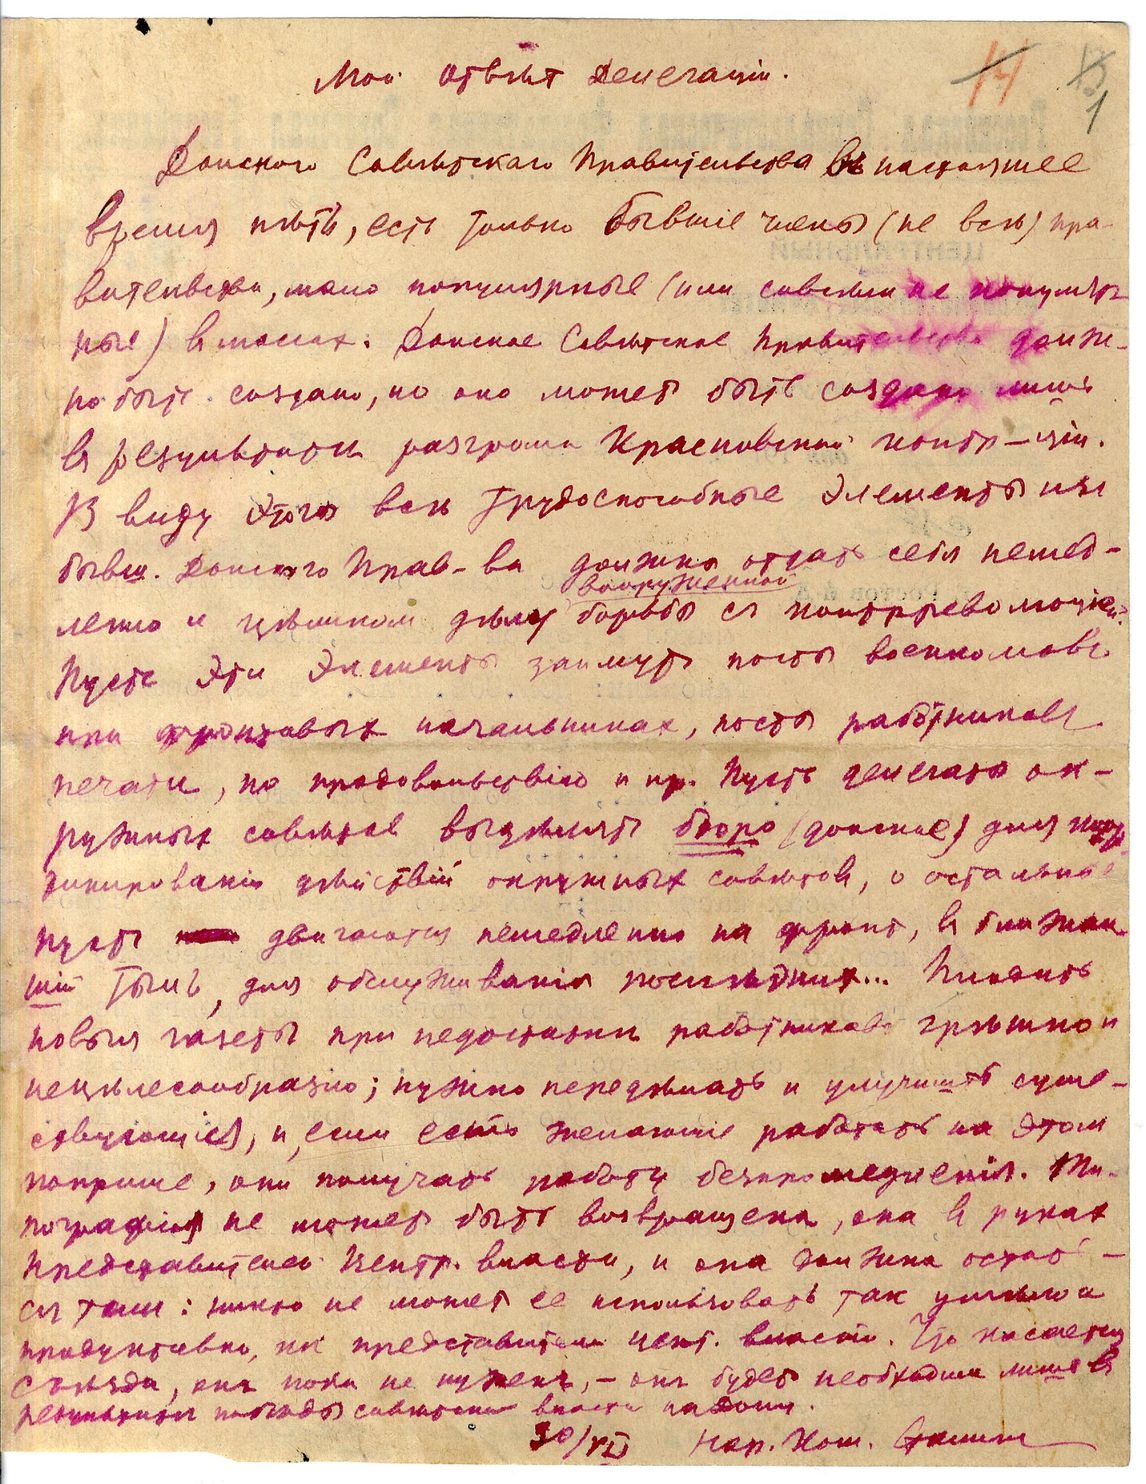 14 13
1
Мой отвѣт делегаціи.
Донского Совѣтскаго Правительства въ настоящее
время нѣтъ, есть только бывшіе члены (не всѣ) пра-
вительства, мало популярные (или совсѣм не популяр
ные) в массах. Донское Совѣтское Правительство долж-
но быть создано, но оно может быть создано лишь
в результатѣ разгрома Красновской контр-ціи.
В виду этого всѣ трудоспособные элементы из
бывш. Донского Прав-ва должны отдать себя немед-
вооруженной
ленно и цѣликом дѣлу борьбы с контрреволюціей.
Пусть эти элементы займут посты военкомов
при фронтовых начальниках, посты работников
печати, по продовольствію и пр. Пусть делегаты ок-
ружных совѣтов выдѣлят бюро (донское) для коор-
динированія дѣйствій окружных совѣтов, а остальные
пусть двигаются немедленно на фронт, в ближай-
шій тыл, для обслуживанія послѣдних... Плодить
новыя газеты при недостаткѣ работников грѣшно и
нецѣлесообразно; нужно передѣлать и улучшить суще-
ствующія, и, если есть желающіе работать на этом
поприще, они получат работу без промедленія. Ти-
пографія не может быть возвращена, она в руках
представителей центр. власти, и она должна остать-
ся там: никто не может ее использовать так умѣло и
продуктивно, как представители цент. власти. Что касается
съѣзда, он пока не нужен, – он будет необходим лишь в
результатѣ побѣды совѣтской власти на Дону.
30/VII Нар. Ком. Сталин